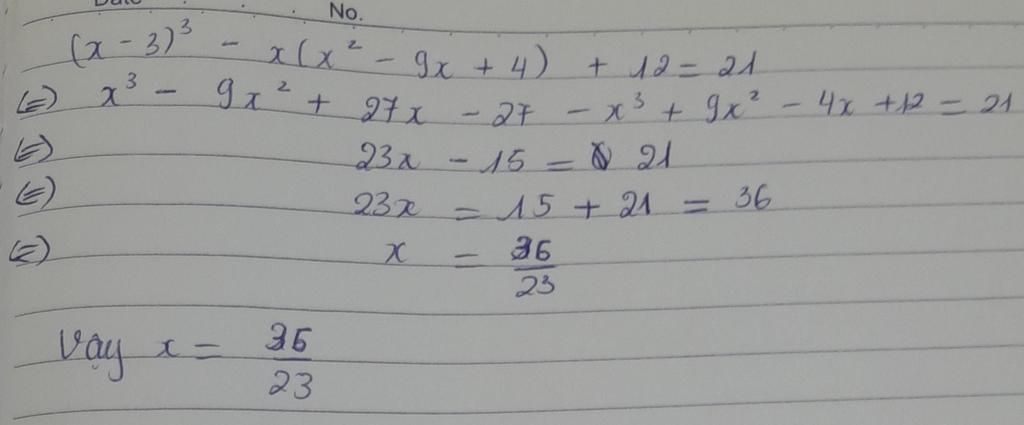 Date No.
(x - 3)³ - x(x² - 9x + 4) + 12 = 21
(=) x³ - 9x² + 27x - 27 - x³ + 9x² - 4x + 12 = 21
(=) 23x - 15 = 21
(=) 23x = 15 + 21 = 36
(=) x = 36/23
Vậy x = 36/23